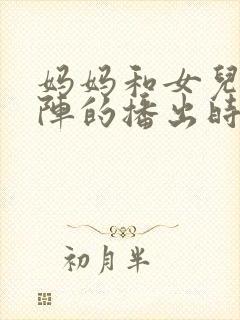 妈妈和女兒
陣的播出時
初月半